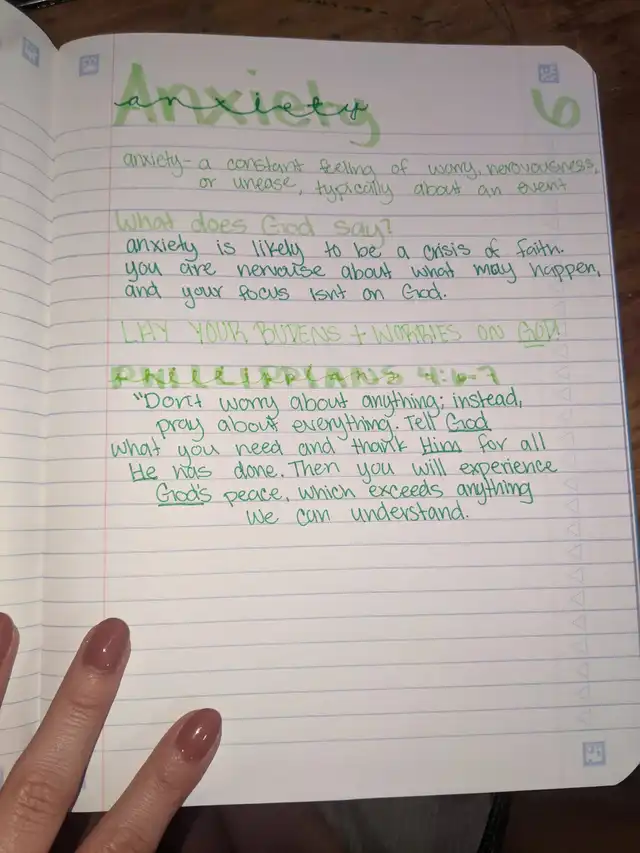 Anxiety
anxiety
6
anxiety- a constant feeling of worry, nervousness,
or unease, typically about an event
What does God say?
anxiety is likely to be a crisis of faith.
you are nervouse about what may happen,
and your focus isnt on God.
LAY YOUR BUDENS + WORRIES ON GOD!
PHILLIPPIANS 4:6-7
"Don't worry about anything; instead,
pray about everything. Tell God
what you need and thank Him for all
He has done. Then you will experience
God's peace, which exceeds anything
we can understand.